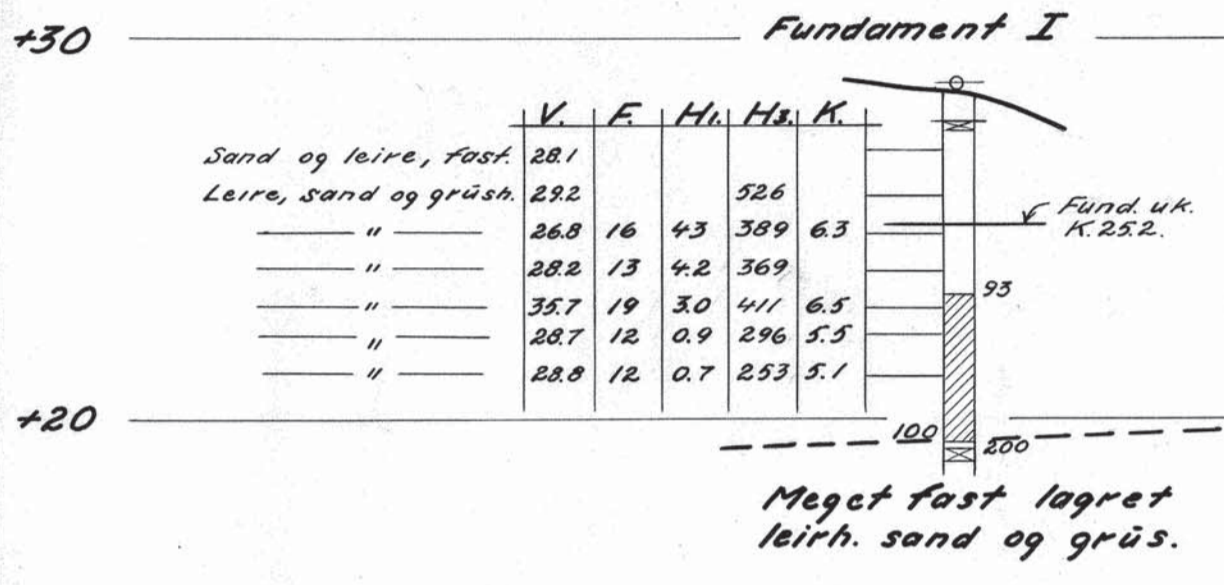 +30 Fundament I
V. F. H1. H3. K.
Sand og leire, fast. 28.1
Leire, sand og grūsh. 29.2 526
Fund. uk.
K. 25.2.
— " — 26.8 16 43 389 6.3
— " — 28.2 13 4.2 369
93
— " — 35.7 19 3.0 411 6.5
— " — 28.7 12 0.9 296 5.5
— " — 28.8 12 0.7 253 5.1
+20
100 200
Meget fast lagret
leirh. sand og grūs.